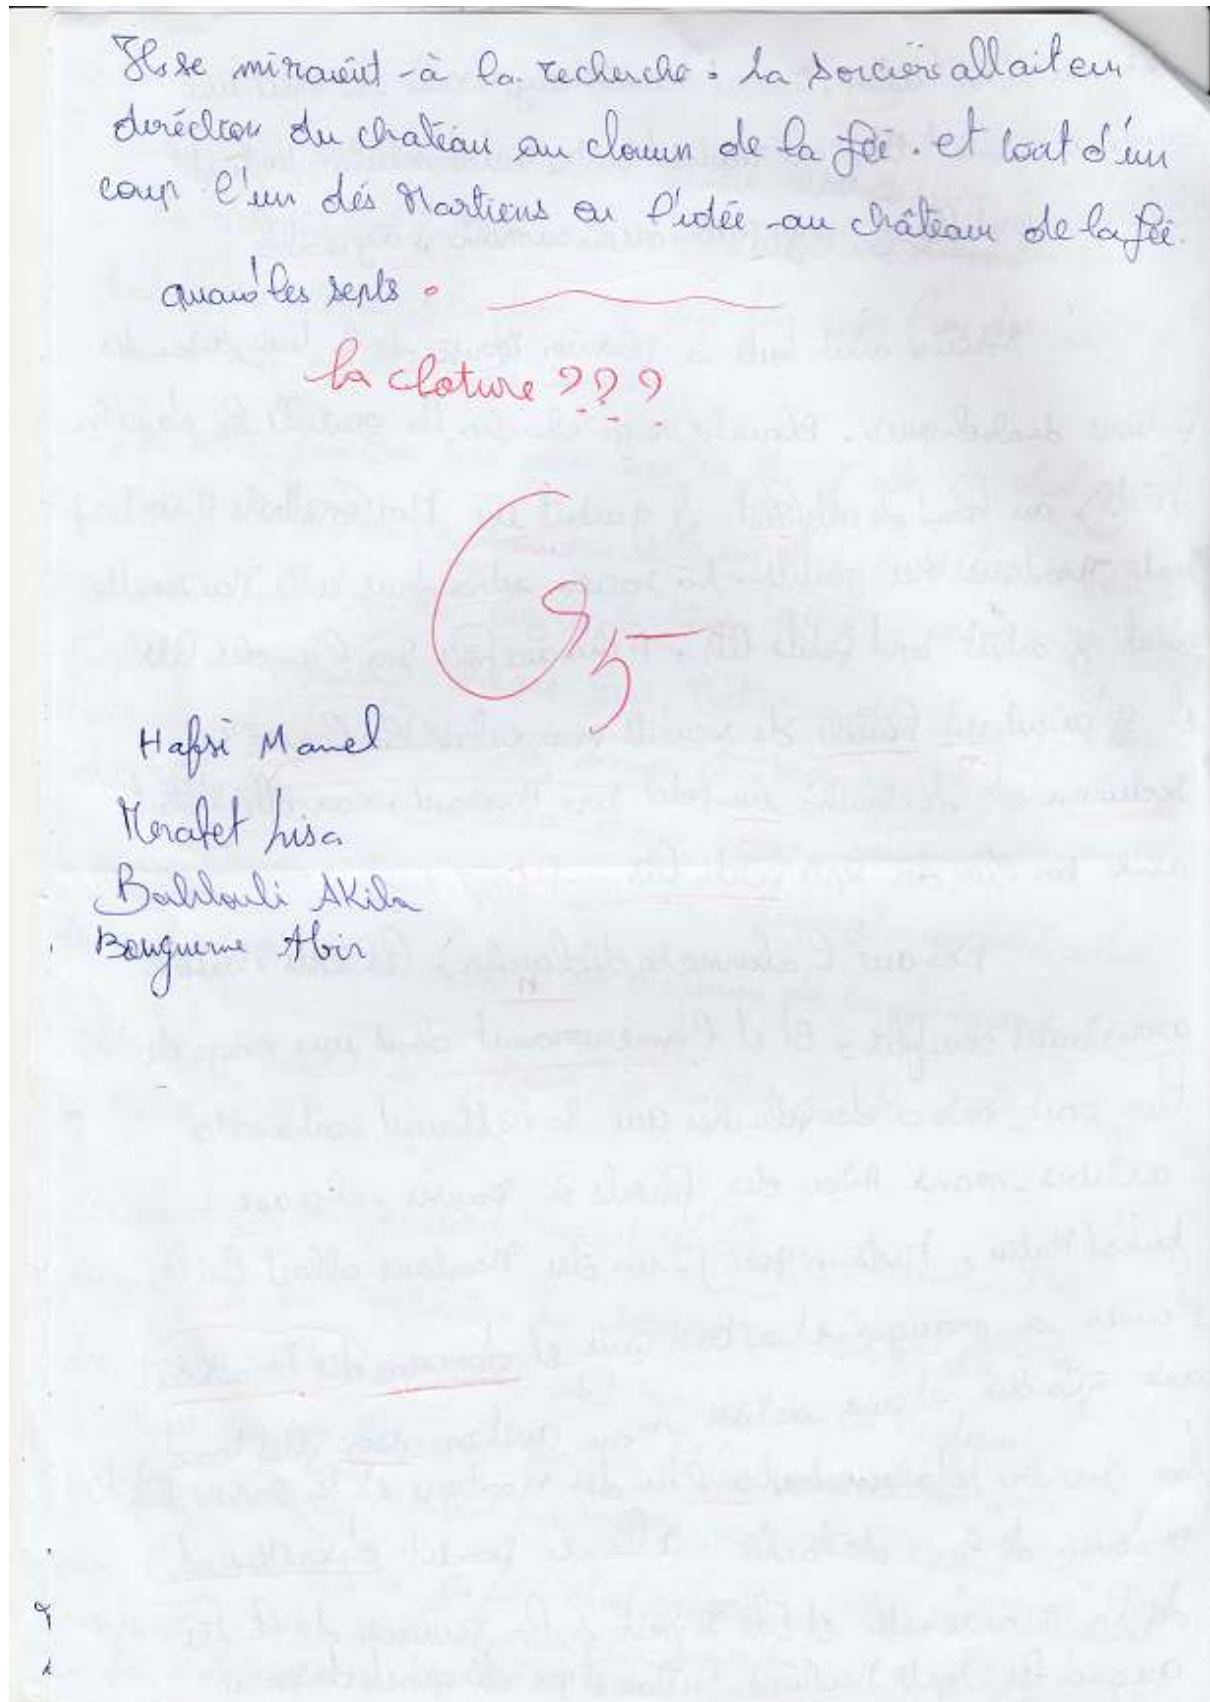 Ils se miraient à la recherche : la sorcière allait en
diréction du chateau au cloum de la fée. et tout d'un
coup l'un dés Martiens eu l'idée au château de la fée.
quand les septs.
la cloture ???
Hafsi Manel
Merabet Lisa
Bahlouli Akila
Bouguerne Abir